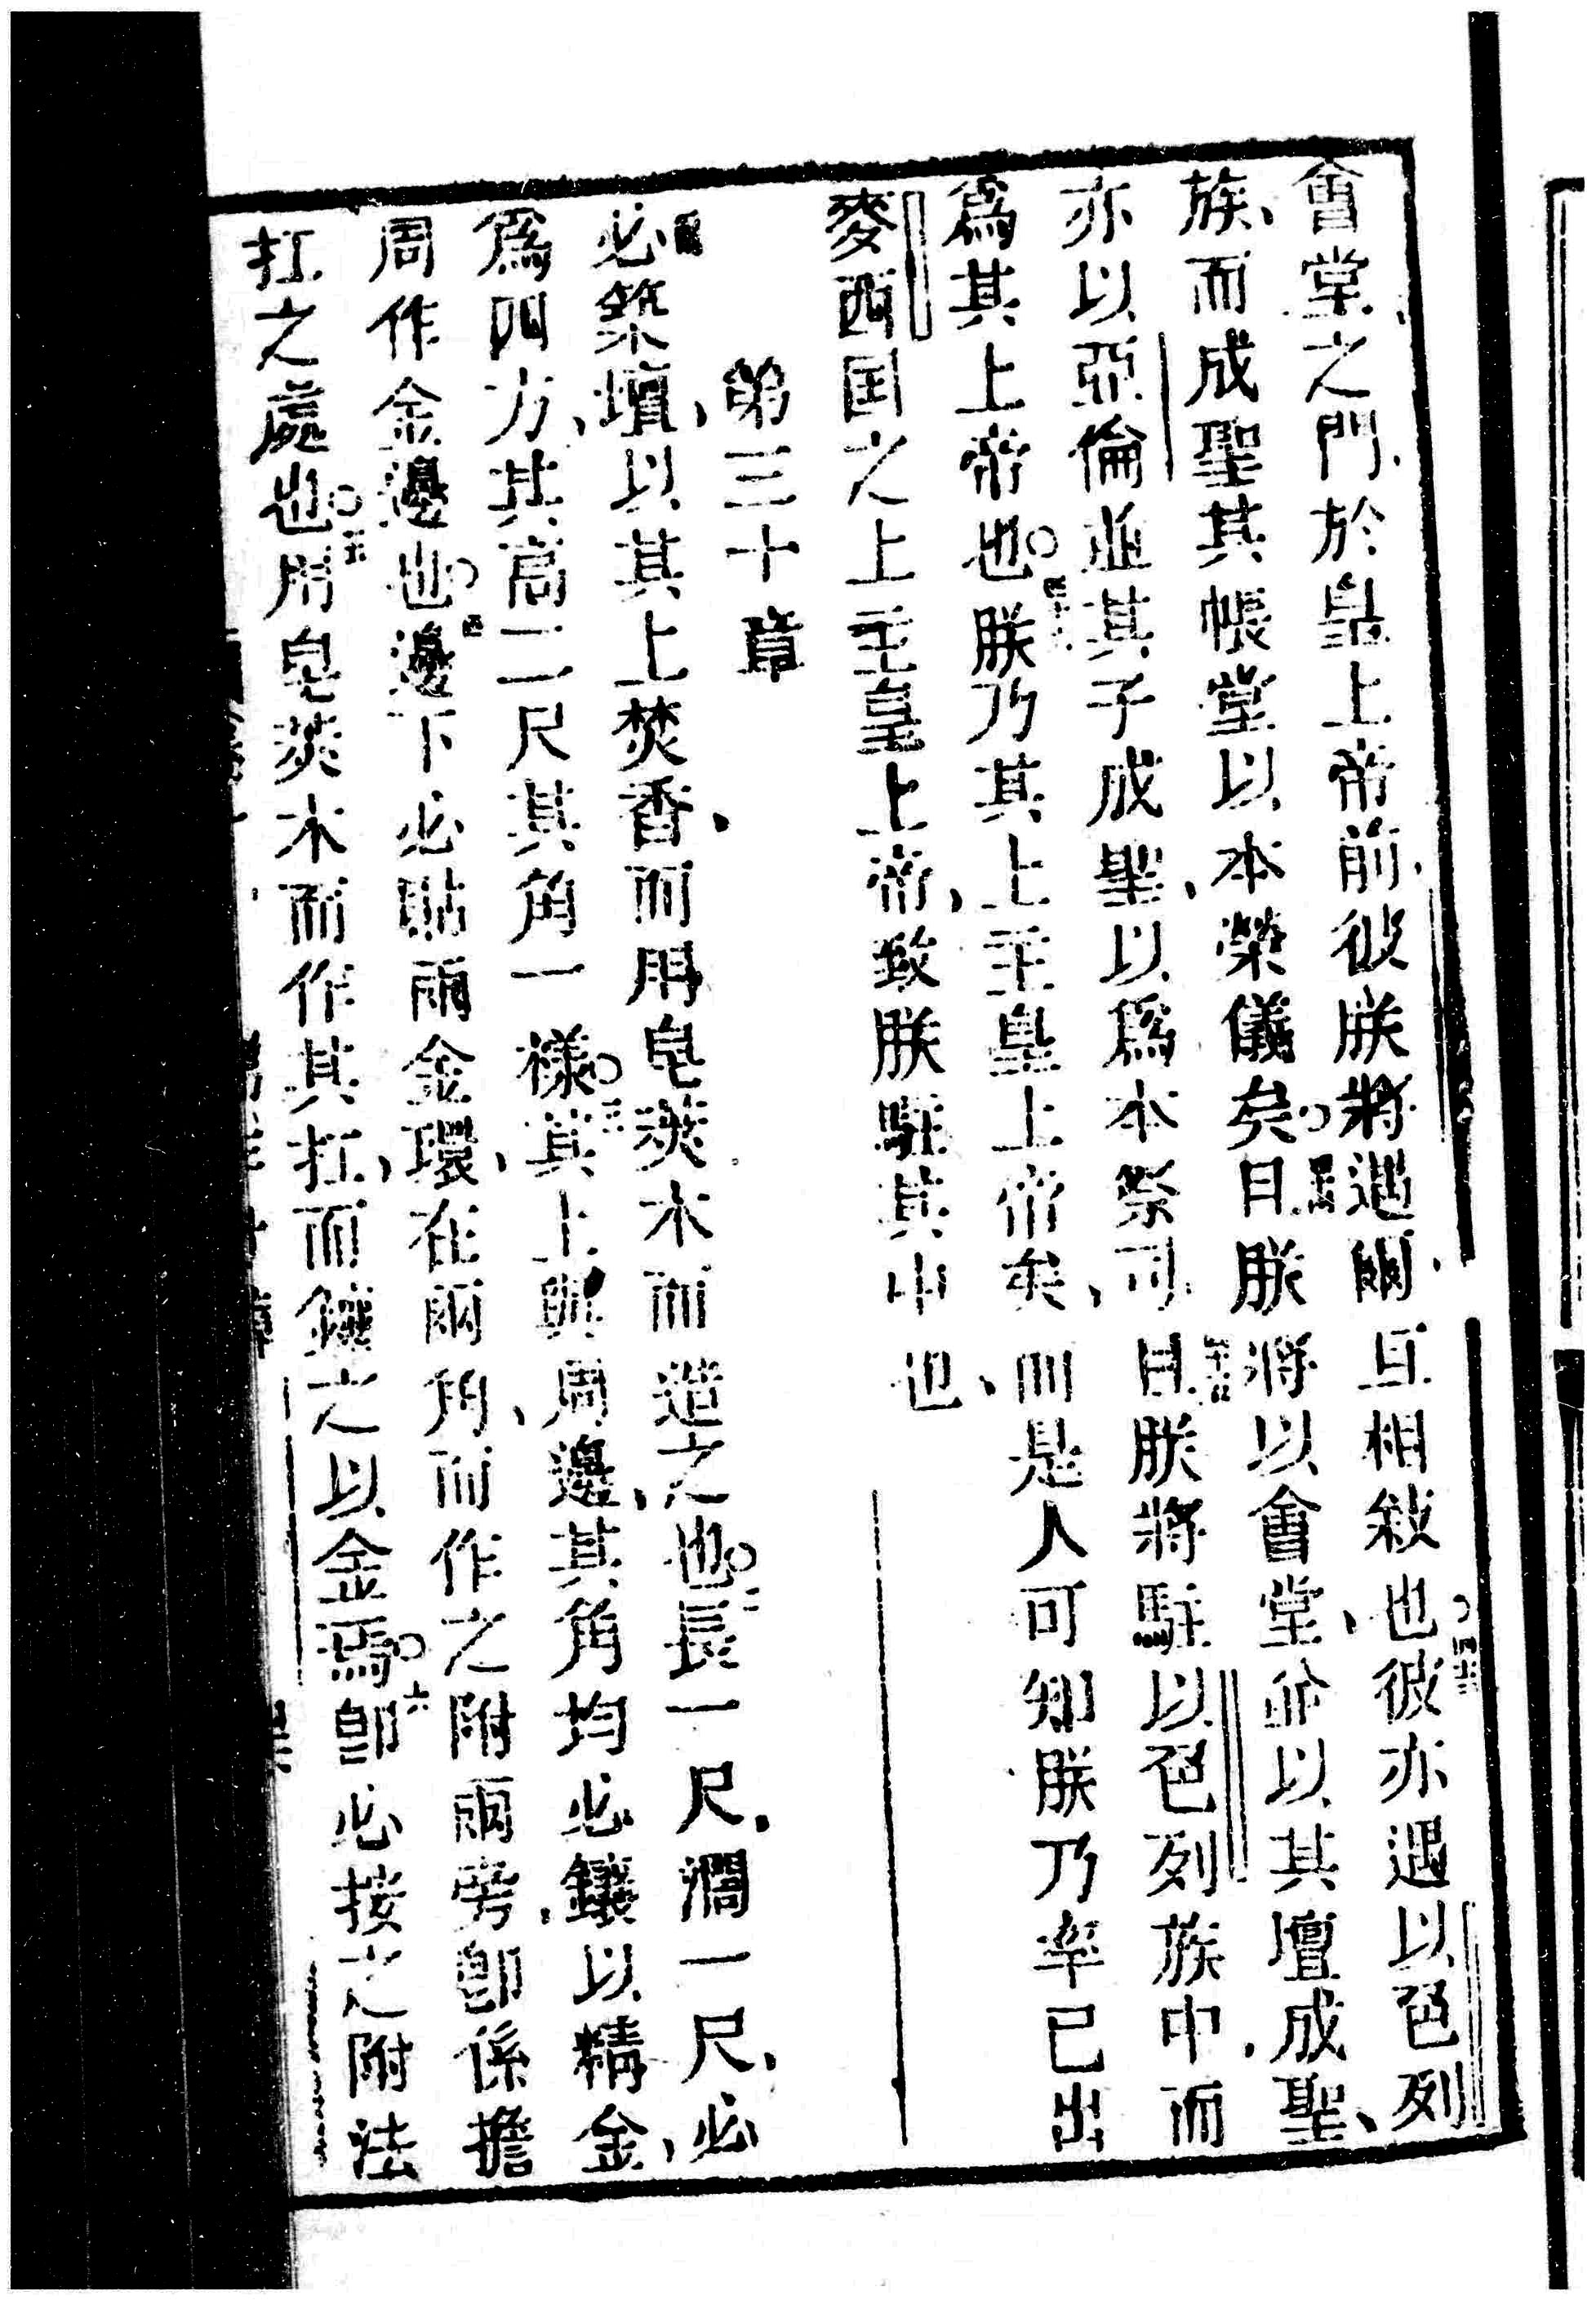 會堂之門、於皇上帝前、彼朕將遇爾、互相敍也。○四十三彼亦遇以色列
族、而成聖其帳堂以本榮儀矣。○四十四且朕將以會堂、並以其壇成聖、
亦以亞倫並其子成聖、以爲本祭司。四十五且朕將駐以色列族中、而
爲其上帝也。○四十六朕乃其上主皇上帝矣、而是人可知朕乃率己出
麥西囯之上主皇上帝、致朕駐其中也、
第三十章
必築壇、以其上焚香、而用皂莢木而造之也。○二長一尺、濶一尺、必
爲四方、其高二尺其角一樣。○三其上與周邊、其角均必鑲以精金、
周作金邊也。○四邊下必貼兩金環、在兩角、而作之附兩旁、卽係擔
扛之處也。○五用皂莢木而作其扛、而鑲之以金焉。○六卽必接之附法